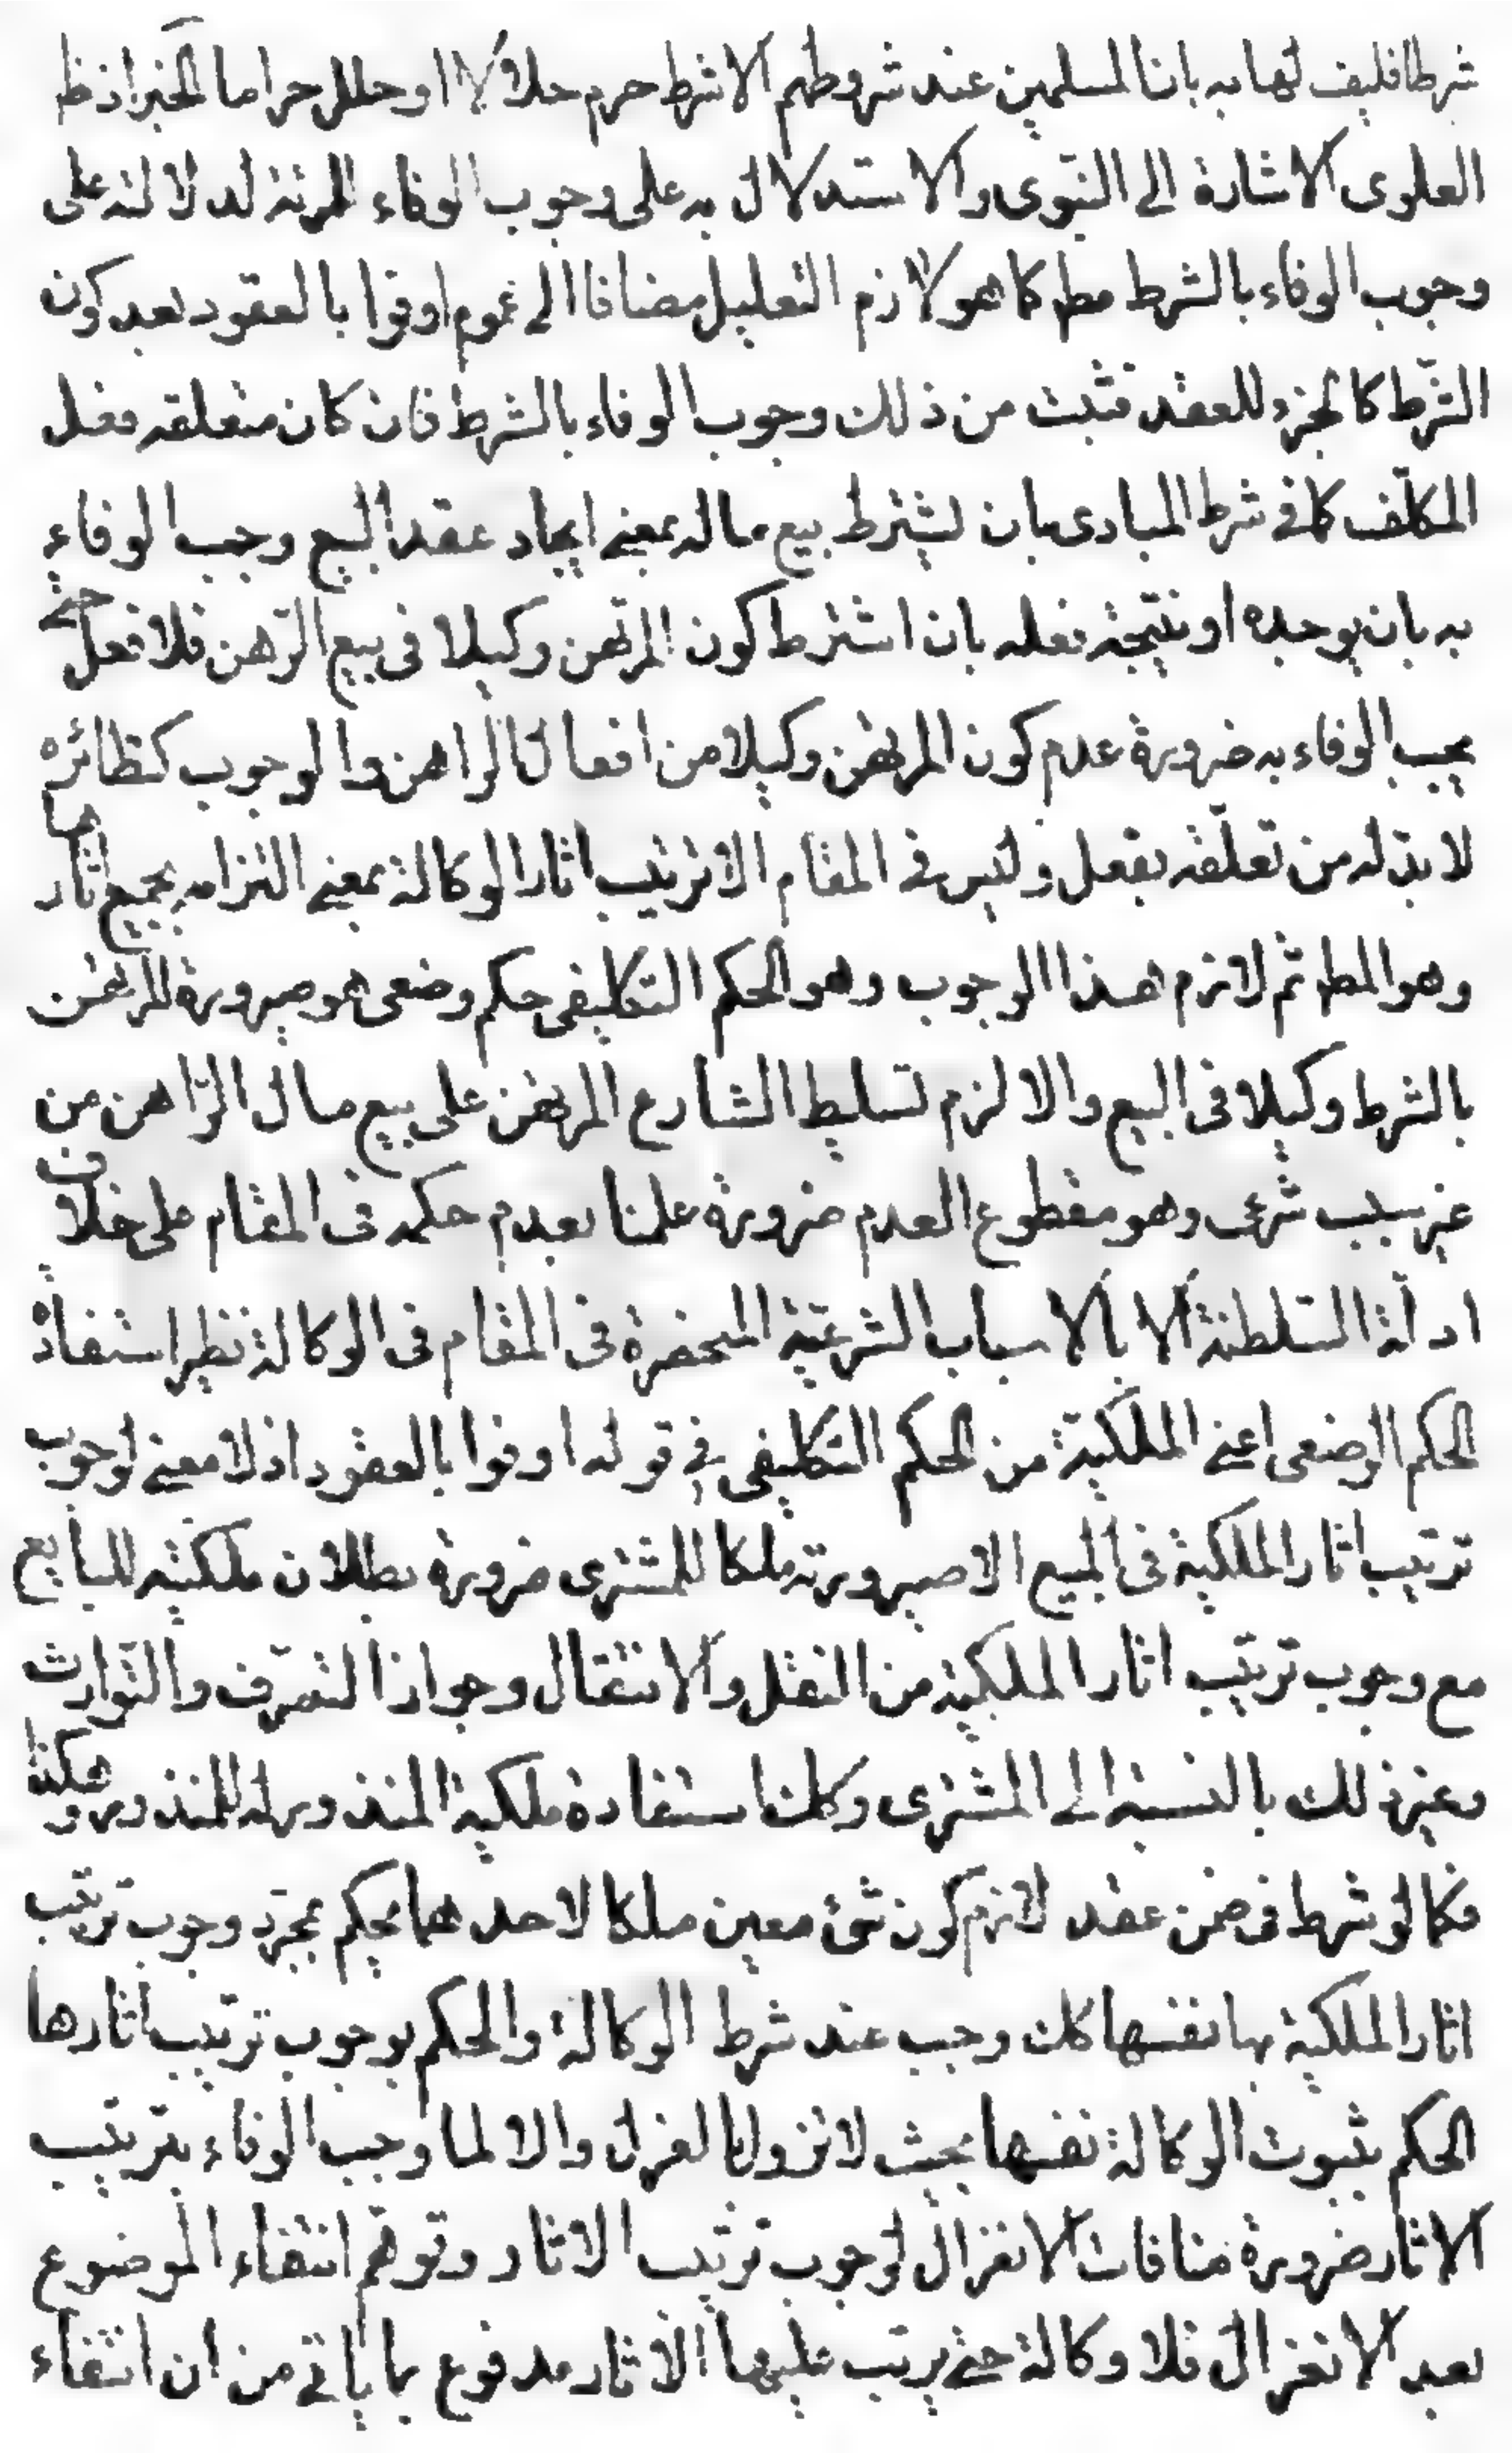 شرطا فليف لها به بان المسلمين عند شروطهم الا شرط حرم حلالا او حلل حراما الخبر اذ ظ
العلوى الاشارة الى النبوى والاستدلال به على وجوب الوفاء للمرئة لدلالته على
وجوب الوفاء بالشرط مط كما هو لازم التعليل مضافا الى عموم اوفوا بالعقود بعد كون
الشرط كالجزء للعقد فثبت من ذلك وجوب الوفاء بالشرط فان كان متعلقه فعل
المكلّف كما فى شرط المبادى بان يشترط بيع ماله بمعنى ايجاد عقد البيع وجب الوفاء
به بان يوجده او نتيجة فعله بان اشترط كون المرتهن وكيلا فى بيع الرّهن فلا فعل حتى
يجب الوفاء به ضرورة عدم كون المرتهن وكيلا من افعال الراهن والوجوب كنظائره
لا بدّ له من تعلّقه بفعل وليس فى المقام الا ترتيب اثار الوكالة بمعنى التزامه بجميع اثارها
وهو المط ثم لازم هذا الوجوب وهو الحكم التكليفى حكم وضعى هو صيرورة المرتهن
بالشرط وكيلا فى البيع والا لزم تسليط الشارع المرتهن على بيع مال الرّاهن من
غير سبب شرعى وهو مقطوع العدم ضرورة علمنا بعدم حكمه فى المقام على خلاف
ادلّة السّلطنة الا بالاسباب الشرعيّة المنحصرة فى المقام فى الوكالة نظير استفادة
الحكم الوضعى اعنى الملكيّة من الحكم التكليفى فى قوله اوفوا بالعقود اذ لا معنى لوجوب
ترتيب اثار الملكية فى المبيع الا صيرورته ملكا للمشترى ضرورة بطلان ملكيته للبايع
مع وجوب ترتيب اثار الملكية من النقل والانتقال وجواز التصرّف والتّوارث
وغير ذلك بالنسبة الى المشترى وكك استفادة ملكية المنذور له للمنذور وهكذا
فكما لو شرط فى ضمن عقد لازم كون شئ معين ملكا لاحدهما يحكم بمجرّد وجوب ترتيب
اثار الملكية بها نفسها كك وجب عند شرط الوكالة والحكم بوجوب ترتيب اثارها
الحكم بثبوت الوكالة نفسها بحيث لا تزول بالعزل والا لما وجب الوفاء بترتيب
الاثار ضرورة منافات الانعزال لوجوب ترتيب الاثار وتوهّم انتفاء الموضوع
بعد الانعزال فلا وكالة حتى يرتب عليها الاثار مدفوع بما ياتى من ان انتفاء